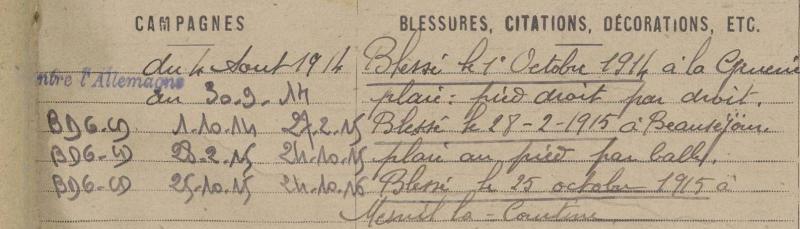 CAMPAGNES
du 4 Aout 1914
contre l'Allemagne
au 30.9.14
BDG-CD 1.10.14 27.2.15
BDG-CD 28.2.15 24.10.15
BDG-CD 25.10.15 24.10.16
BLESSURES, CITATIONS, DÉCORATIONS, ETC.
Blessé le 1er Octobre 1914 à la
plaie : pied droit par droit.
Blessé le 28-2-1915 à Beauséjour.
plaie au pied par balle.
Blessé le 25 octobre 1915 à
Mesnil la-